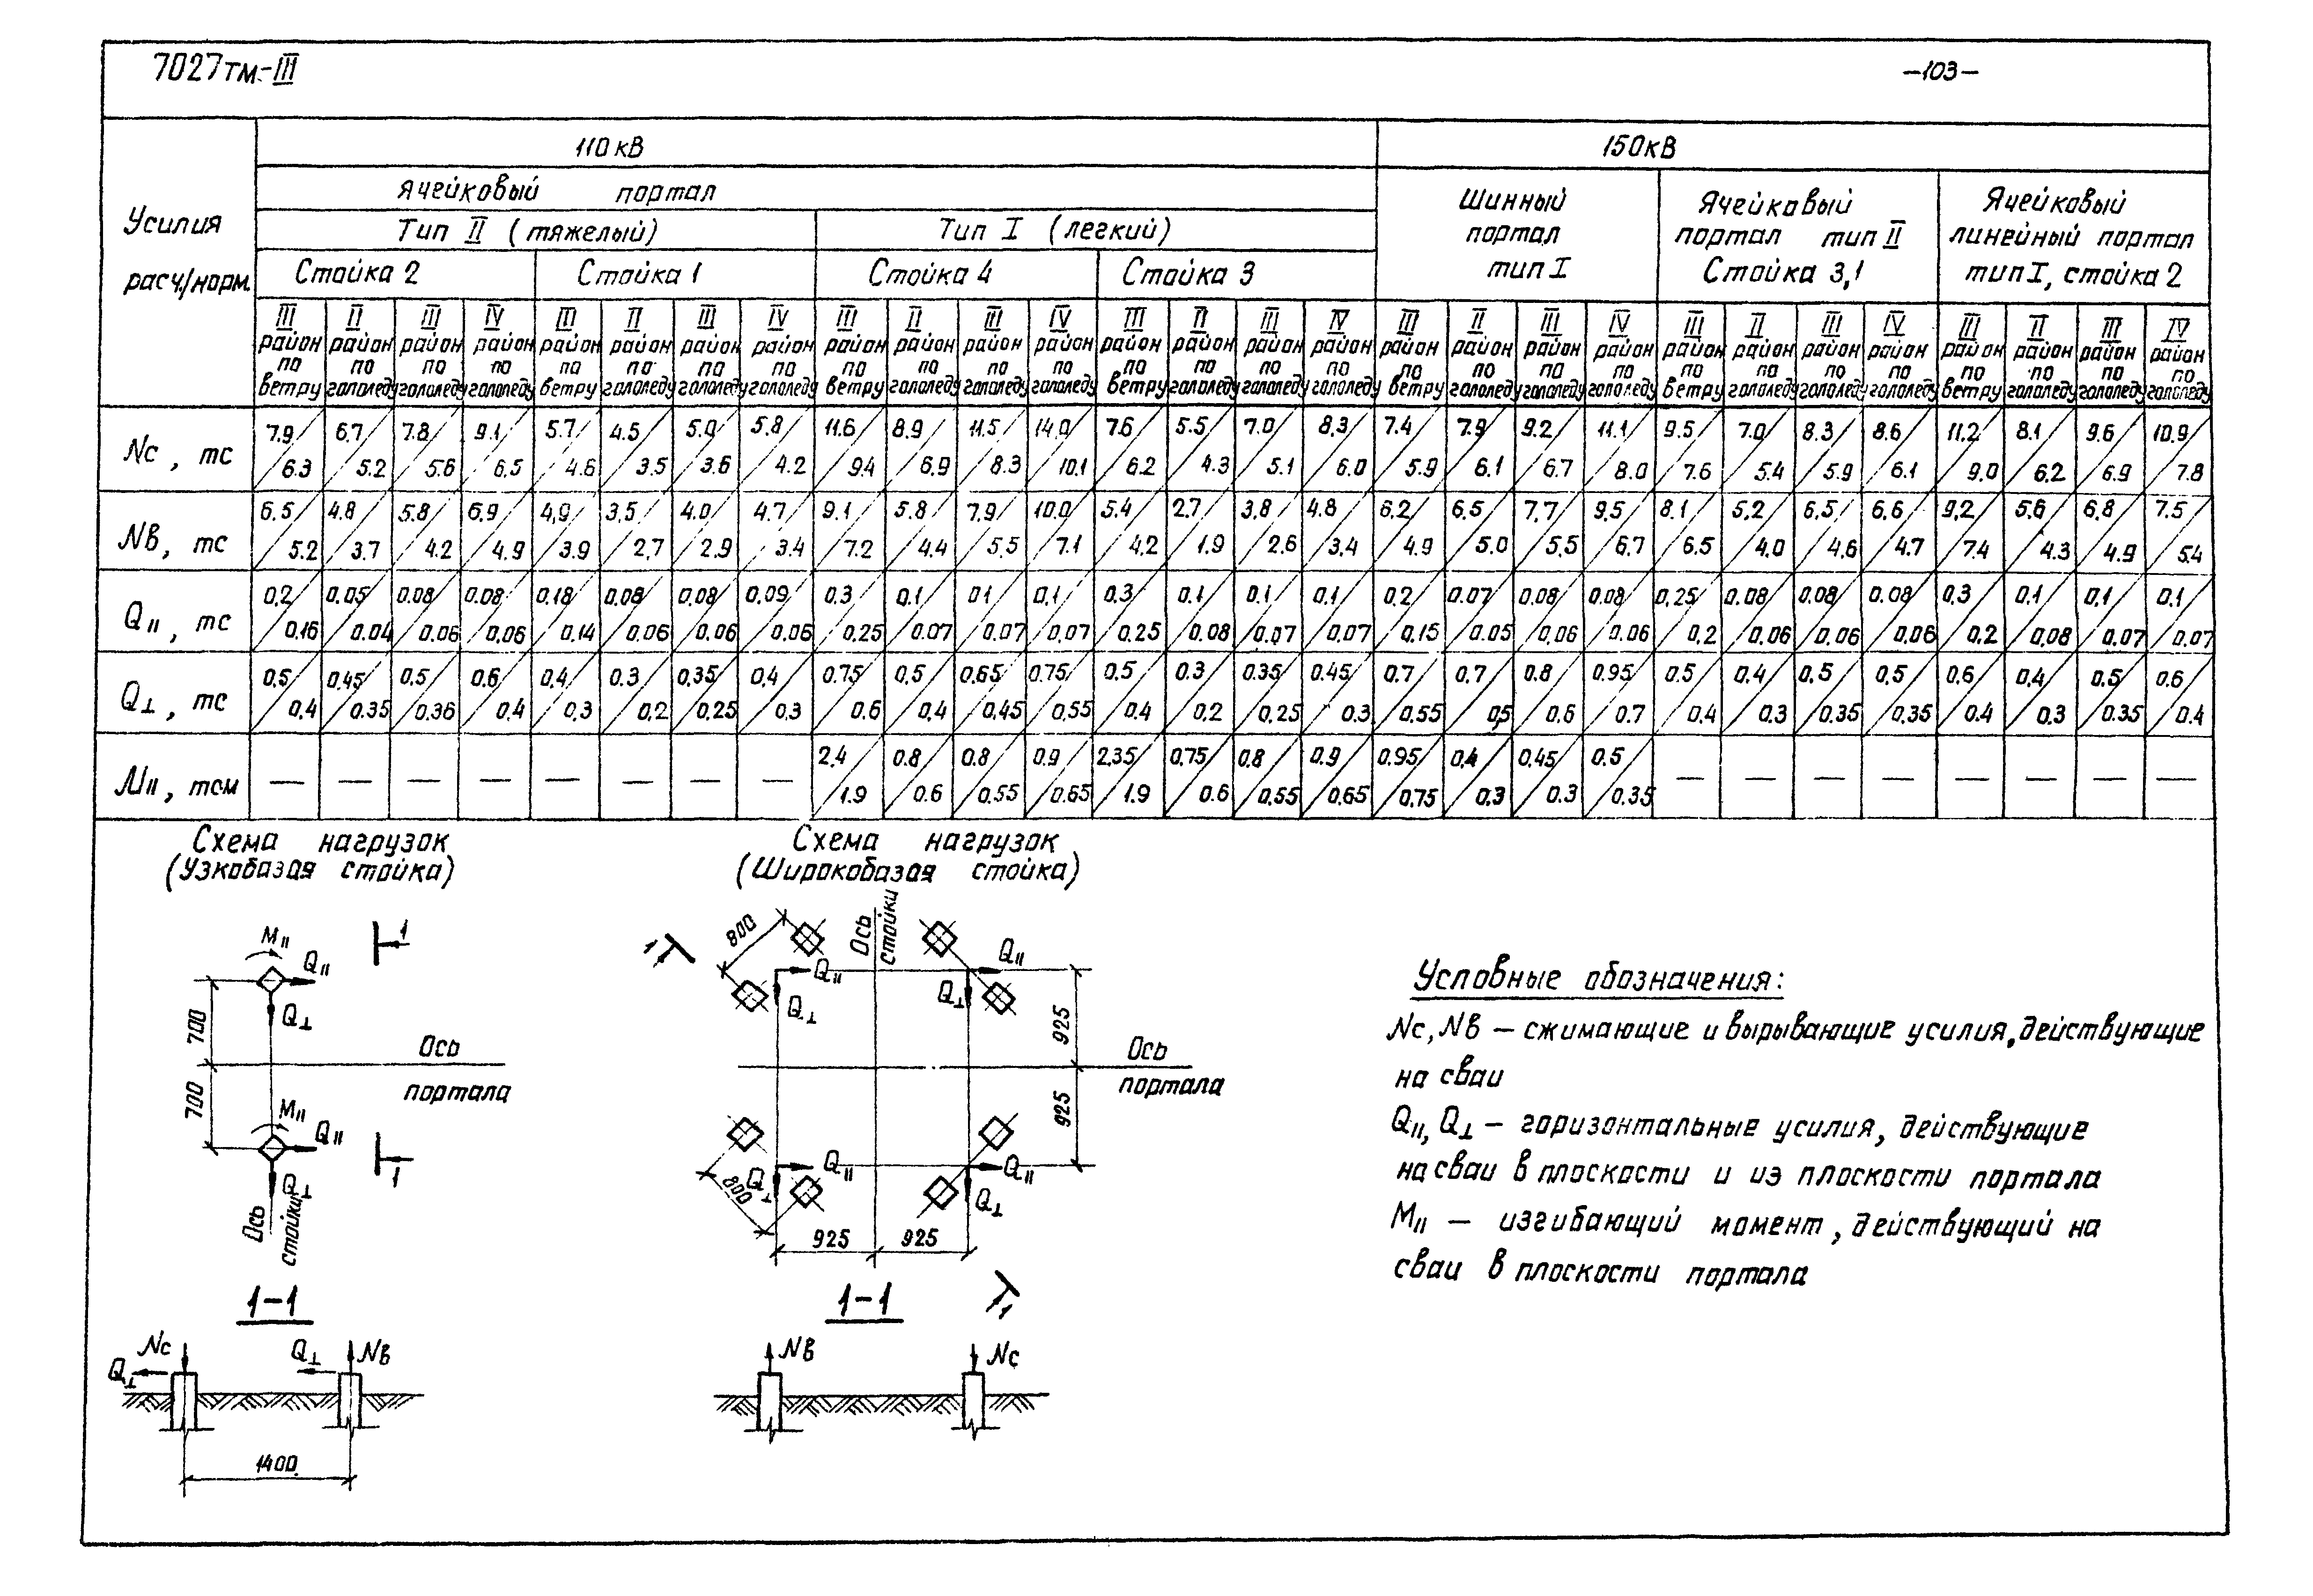 7027тм-III
-103-
Усилия расч./норм.
110 кВ
150 кВ
Ячейковый портал
Тип II (тяжелый)
Тип I (легкий)
Стойка 2
Стойка 1
Стойка 4
Стойка 3
Шинный портал тип I
Ячейковый портал тип II Стойка 3,1
Ячейковый линейный портал тип I, стойка 2
III район по ветру II район по гололеду III район по гололеду IV район по гололеду III район по ветру II район по гололеду III район по гололеду IV район по гололеду III район по ветру II район по гололеду III район по гололеду IV район по гололеду III район по ветру II район по гололеду III район по гололеду IV район по гололеду III район по ветру II район по гололеду III район по гололеду IV район по гололеду III район по ветру II район по гололеду III район по гололеду IV район по гололеду III район по ветру II район по гололеду III район по гололеду IV район по гололеду
Nс, тс 7.9/6.3 6.7/5.2 7.8/5.6 9.1/6.5 5.7/4.6 4.5/3.5 5.0/3.6 5.8/4.2 11.6/9.4 8.9/6.9 11.5/8.3 14.0/10.1 7.6/6.2 5.5/4.3 7.0/5.1 8.3/6.0 7.4/5.9 7.9/6.1 9.2/6.7 11.1/8.0 9.5/7.6 7.0/5.4 8.3/5.9 8.6/6.1 11.2/9.0 8.1/6.2 9.6/6.9 10.9/7.8
Nв, тс 6.5/5.2 4.8/3.7 5.8/4.2 6.9/4.9 4.9/3.9 3.5/2.7 4.0/2.9 4.7/3.4 9.1/7.2 5.8/4.4 7.9/5.5 10.0/7.1 5.4/4.2 2.7/1.9 3.8/2.6 4.8/3.4 6.2/4.9 6.5/5.0 7.7/5.5 9.5/6.7 8.1/6.5 5.2/4.0 6.5/4.6 6.6/4.7 9.2/7.4 5.6/4.3 6.8/4.9 7.5/5.4
Q||, тс 0.2/0.16 0.05/0.04 0.08/0.06 0.08/0.06 0.18/0.14 0.08/0.06 0.08/0.06 0.09/0.06 0.3/0.25 0.1/0.07 0.1/0.07 0.1/0.07 0.3/0.25 0.1/0.08 0.1/0.07 0.1/0.07 0.2/0.15 0.07/0.05 0.08/0.06 0.08/0.06 0.25/0.2 0.08/0.06 0.08/0.06 0.08/0.06 0.3/0.2 0.1/0.08 0.1/0.07 0.1/0.07
Q⊥, тс 0.5/0.4 0.45/0.35 0.5/0.36 0.6/0.4 0.4/0.3 0.3/0.2 0.35/0.25 0.4/0.3 0.75/0.6 0.5/0.4 0.65/0.45 0.75/0.55 0.5/0.4 0.3/0.2 0.35/0.25 0.45/0.3 0.7/0.55 0.7/0.5 0.8/0.6 0.95/0.7 0.5/0.4 0.4/0.3 0.5/0.35 0.5/0.35 0.6/0.4 0.4/0.3 0.5/0.35 0.6/0.4
М||, тсм — — — — — — — — 2.4/1.9 0.8/0.6 0.8/0.55 0.9/0.65 2.35/1.9 0.75/0.6 0.8/0.55 0.9/0.65 0.95/0.75 0.4/0.3 0.45/0.3 0.5/0.35 — — — — — — — —
Схема нагрузок
(Узкобазая стойка)
М||
Q||
Q⊥
1
700
700
Ось
портала
М||
Q||
Q⊥
1
Ось
стойки
1-1
Nс
Q⊥
Q⊥
Nв
1400
Схема нагрузок
(Широкобазая стойка)
1
800
Ось
стойки
Q||
Q⊥
Q||
Q⊥
925
Ось
портала
925
800
Q⊥
Q||
Q||
Q⊥
925
925
1-1
1
Nв
Nс
Условные обозначения:
Nс, Nв — сжимающие и вырывающие усилия, действующие
на сваи
Q||, Q⊥ — горизонтальные усилия, действующие
на сваи в плоскости и из плоскости портала
М|| — изгибающий момент, действующий на
сваи в плоскости портала